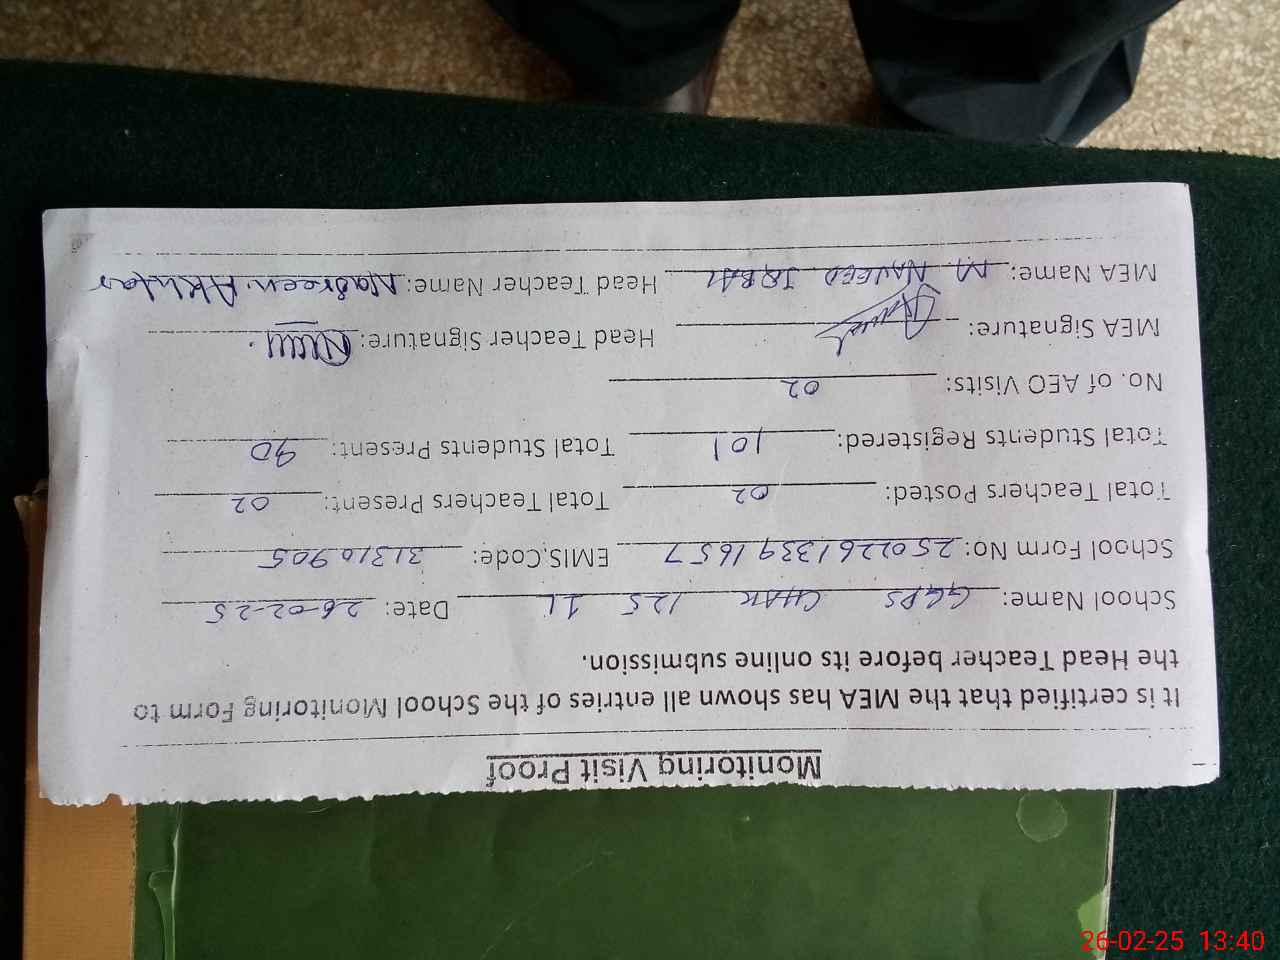 Monitoring Visit Proof
It is certified that the MEA has shown all entries of the School Monitoring Form to
the Head Teacher before its online submission.
School Name: GGPS CHAK 125 1L Date: 26-02-25
School Form No: 2502261339 1657 EMIS.Code: 31310905
Total Teachers Posted: 02 Total Teachers Present: 02
Total Students Registered: 101 Total Students Present: 90
No. of AEO Visits: 02
MEA Signature: Head Teacher Signature:
MEA Name: M NAVEED IQBAL Head Teacher Name: Nasreen Akhtar
26-02-25 13:40